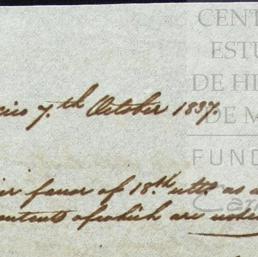 CENT
ESTU
DE HI
DE M
FUND
Car
ico 7.th October 1837.
favor of 18th ulto. as a
contents of which are note